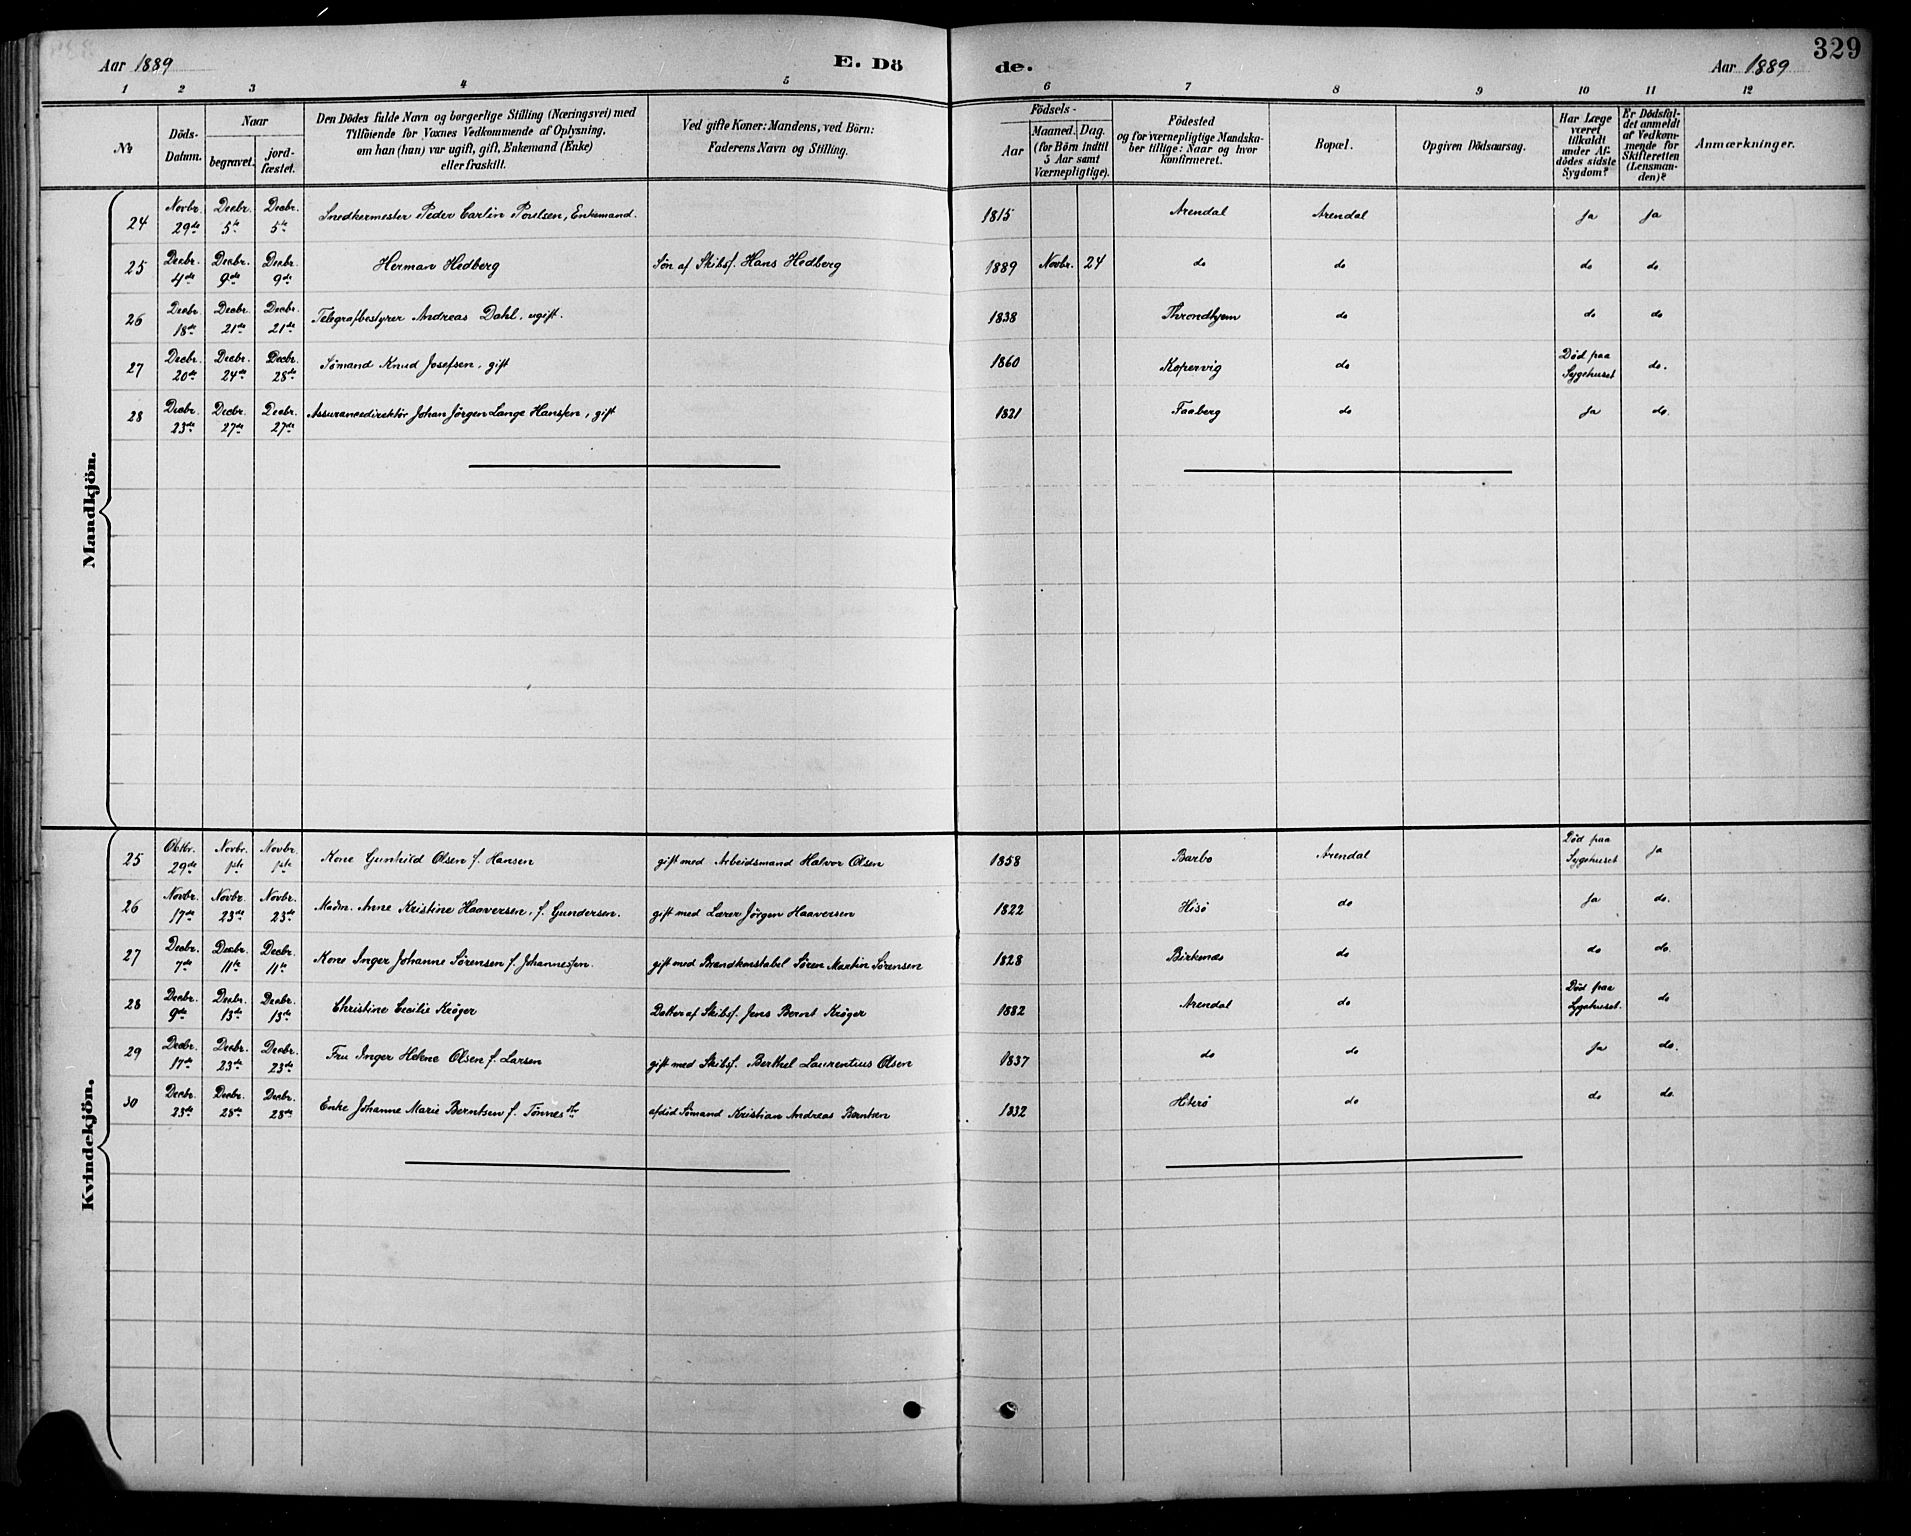 329
Aar 1889
E. Dö
de.
Aar 1889
1 2 3 4 5 6 7 8 9 10 11 12
№
Döds-
Datum.
Naar
begravet.
jord-
fæstet.
Den Dödes fulde Navn og borgerlige Stilling (Næringsvei) med
Tilföiende for Voxnes Vedkommende af Oplysning,
om han (hun) var ugift, gift, Enkemand (Enke)
eller fraskilt.
Ved gifte Koner: Mandens, ved Börn:
Faderens Navn og Stilling.
Födsels-
Aar
Maaned. Dag.
(for Börn indtil
5 Aar samt
Værnepligtige).
Födested
og for værnepligtige Mandska-
ber tillige: Naar og hvor
konfirmeret.
Bopæl.
Opgiven Dödsaarsag.
Har Læge
været
tilkaldt
under Af-
dödes sidste
Sygdom?
Er Dödsfal-
det anmeldt
af Vedkom-
mende for
Skifteretten
(Lensman-
den)?
Anmærkninger.
Mandkjön.
24 Novbr. 29de Decbr. 5te Decbr. 5te Snedkermester Peder Carlin Poulsen, Enkemand. 1815 Arendal Arendal Ja Ja
25 Decbr. 4de Decbr. 9de Decbr. 9de Herman Hedberg Søn af Skibsf. Hans Hedberg 1889 Novbr. 24 do do do do
26 Decbr. 18de Decbr. 21de Decbr. 21de Telegrafbestyrer Andreas Dahl, ugift. 1838 Throndhjem do do do
27 Decbr. 20de Decbr. 24de Decbr. 28de Sømand Knud Josefsen, gift 1860 Kopervig do Død paa Sygehuset do.
28 Decbr. 23de Decbr. 27de Decbr. 27de Assurancedirektør Johan Jörgen Lange Hanssen, gift 1821 Faaberg do Ja do.
Kvindekjön.
25 Oktbr. 29de Novbr. 1ste Novbr. 1ste Kone Gunhild Olsen f. Hansen gift med Arbeidsmand Halvor Olsen 1858 Barbo Arendal Død paa Sygehuset Ja
26 Novbr. 17de Novbr. 23de Novbr. 23de Madm. Anne Kristine Haaversen, f. Gundersen. gift med Lærer Jörgen Haaversen 1822 Hisö do Ja do.
27 Decbr. 7de Decbr. 11te Decbr. 11te Kone Inger Johanne Sørensen f. Johannessen. gift med Brandkonstabel Søren Martin Sørensen 1828 Birkenæs do do do.
28 Decbr. 9de Decbr. 13de Decbr. 13de Christine Cecilie Krøger Datter af Skibsf. Jens Bernt Krøger 1882 Arendal do Død paa Sygehuset. do
29 Decbr. 17de Decbr. 23de Decbr. 23de Fru Inger Helene Olsen f. Larsen gift med Skibsf. Berthel Laurentius Olsen 1837 do do Ja do.
30 Decbr. 23de Decbr. 28de Decbr. 28de Enke Johanne Marie Berntsen f. Tönnesdtr afdød Sømand Kristian Andreas Berntsen 1832 Hiterø do do do.